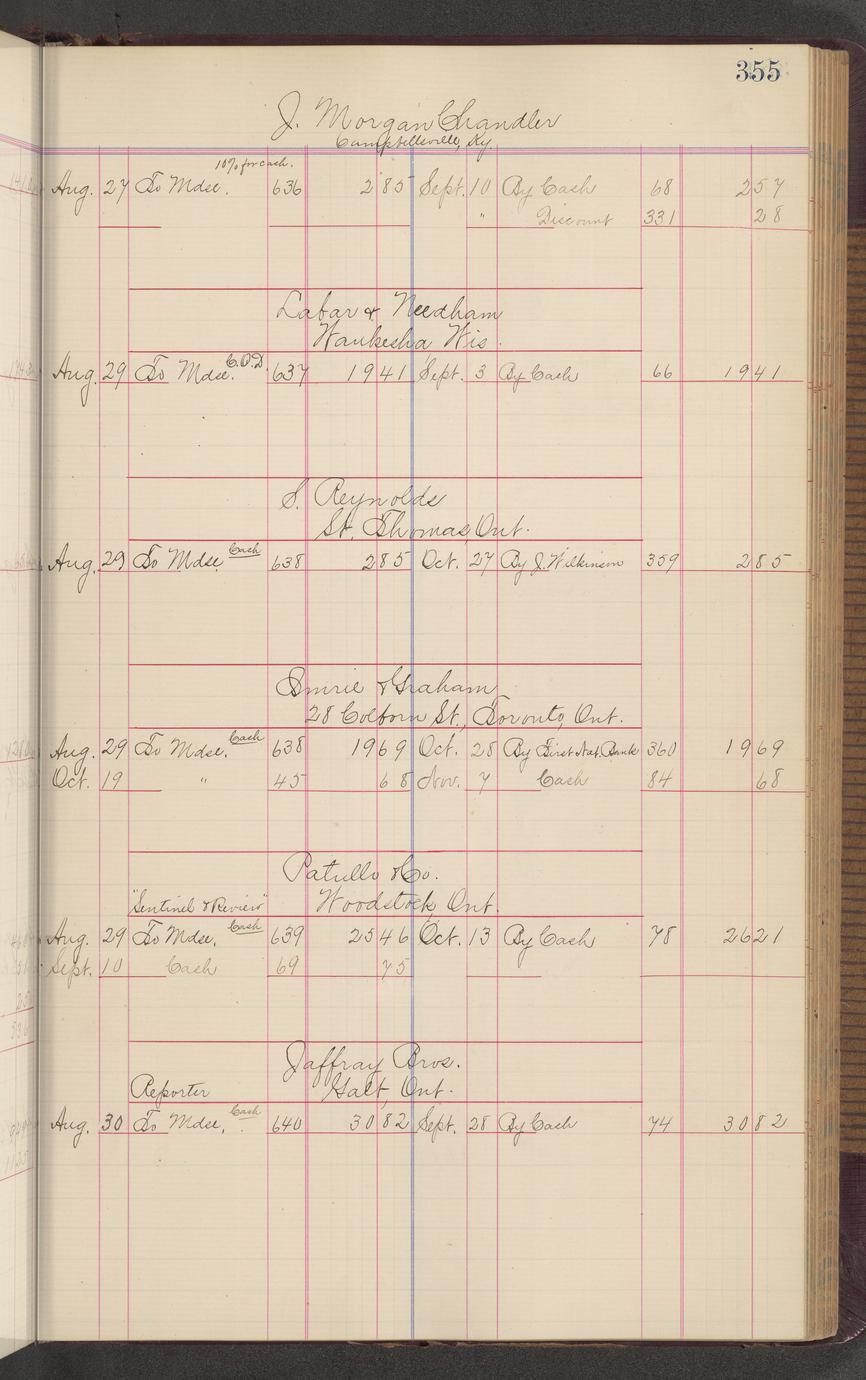 355
J. Morgan Chandler
Campbellsville, Ky.
10% for cash.
Aug. 27 To Mdse. 636 2 85 Sept. 10 By Cash 68 2 57
" Discount 331 28
Labar & Needham
Waukesha Wis.
Aug. 29 To Mdse. C.O.D. 637 19 41 Sept. 3 By Cash 66 19 41
S. Reynolds
St. Thomas, Ont.
Aug. 29 To Mdse. Cash 638 2 85 Oct. 27 By J. Wilkinson 359 2 85
Imrie & Graham
28 Colborn St., Toronto, Ont.
Aug. 29 To Mdse. Cash 638 19 69 Oct. 28 By First Nat. Bank 360 19 69
Oct. 19 " 45 68 Nov. 7 Cash 84 68
Patullo & Co.
"Sentinel & Review" Woodstock, Ont.
Aug. 29 To Mdse. Cash 639 25 46 Oct. 13 By Cash 78 26 21
Sept. 10 Cash 69 75
Jaffray Bros.
Reporter Galt, Ont.
Aug. 30 To Mdse. Cash 640 30 82 Sept. 28 By Cash 74 30 82